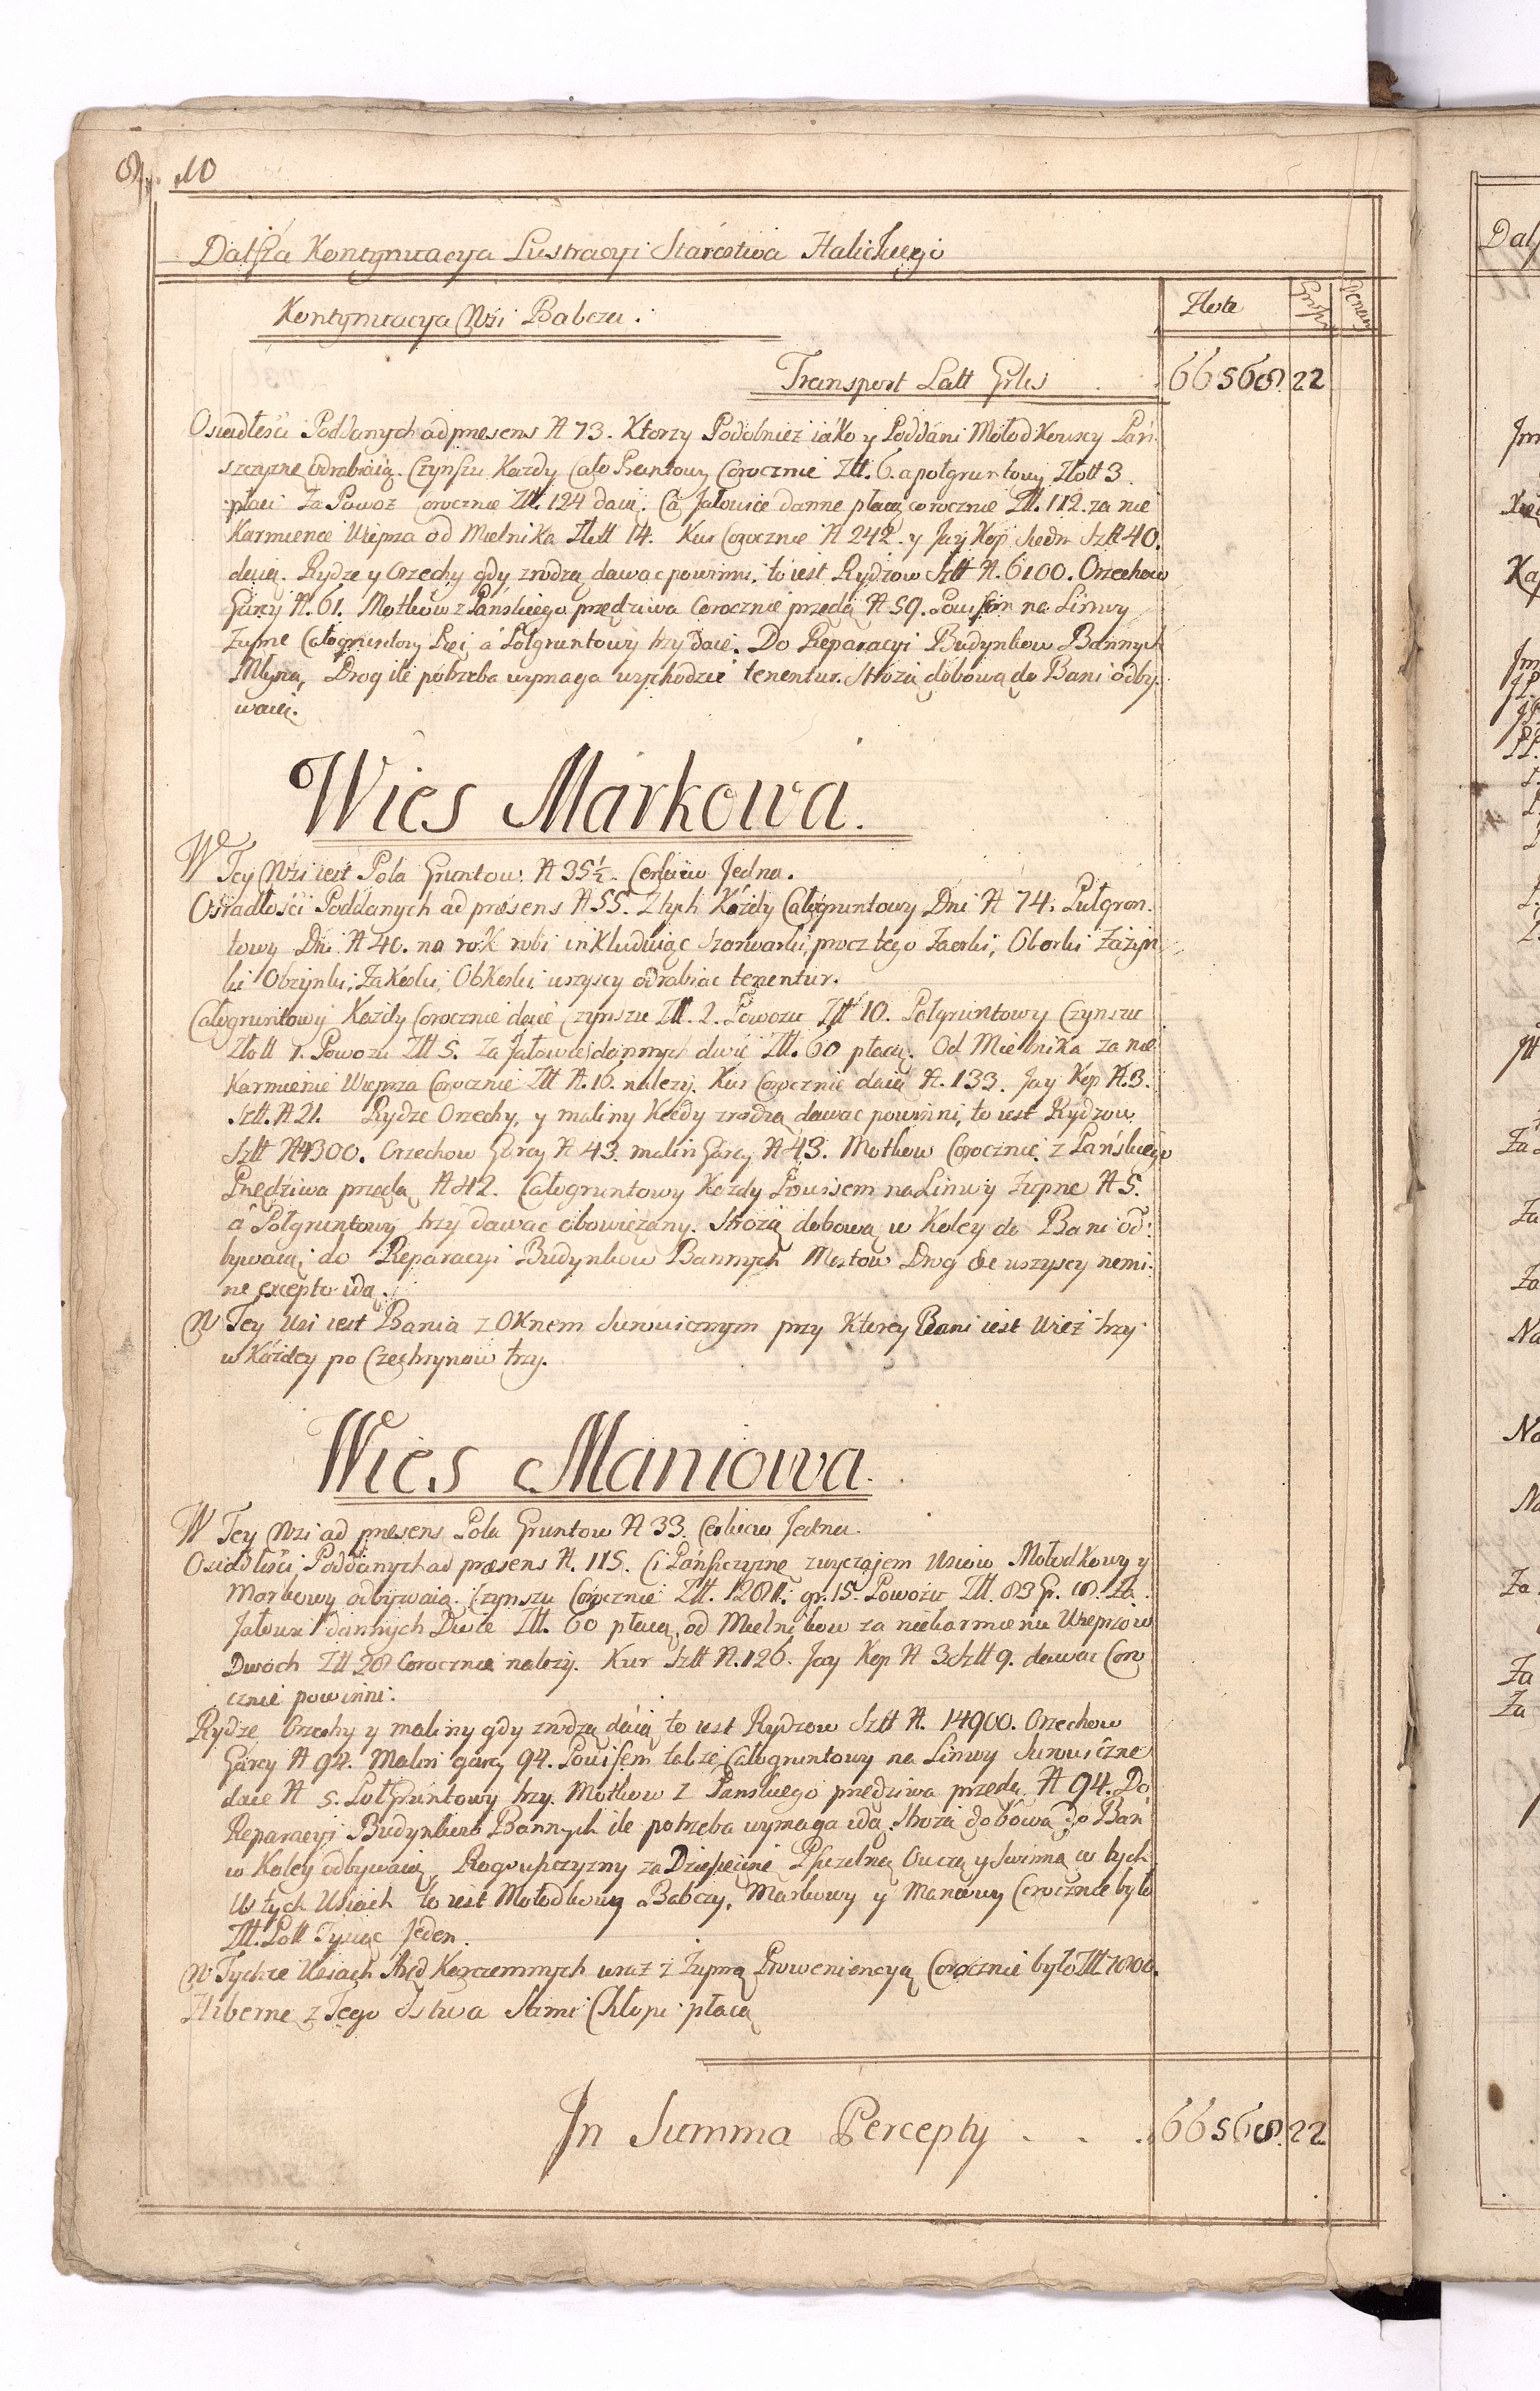 10
Dalsza Kontynuacya Lustracyi Starostwa Halickiego
Kontynuacya Wsi Babcza.
Złote
Transport Latt Gr
66568. 22
Osiadłości Poddanych ad presens N 73. Ktorzy Podolniez iako y Poddani Mołodkowscy Pań:
szczyznę odrabiaią. Czynszu Kazdy Cało Gruntowy Corocznie Złł. 6. a połgruntowy Złott 3.
płaci Za Powoz Corocznie Złł. 124 daią. Za Jałowice danne płacą corocznie Złł. 112. za nie
Karmienie Wieprza od Mielnika Złott 14. Kur Corocznie N 242. y Jaj Kop siedm Sztt 40.
daią. Rydze y Orzechy gdy zrodzą dawac powinni, to iest Rydzow Sztt N. 6100. Orzechow
Garcy N. 61. Motkow z Pańskiego przędziwa Corocznie przędą N 59. Powisem na Linwy
Zupne Całogruntowy Pięć a Połgruntowy trzy daie. Do Reparacyi Budynkow Bannych
Młyna, Drog ile potrzeba wymaga wychodzic tenentur. Strozą dobową do Bani odby
waią.
Wies Markowa.
W Tey Wsi iest Pola Gruntow. N 35½. Cerkiew Jedna.
Osiadłości Poddanych ad præsens N 55. Z tych Kázdy Całogruntowy Dni N 74. Pułgron.
towy Dni N 40. na rok robi inkluduiąc Szarwarki, procz tego Zaorki, Oborki Zazyn
ki Obzynki, Zakoski, Obkoski wszyscy odrabiac tenentur.
Całogruntowy Kazdy Corocznie daie Czynszu Złł. 2. Powozu Złł 10. Połgruntowy Czynszu
Złott 1. Powozu Złł 5. Za Jałowic dannych dwie Złł. 60 płacą. Od Mielnika za nie
Karmienie Wieprza Corocznie Złł N. 16. nalezy. Kur Corocznie daią N. 133. Jay Kop N. 3.
Sztt. N 21. Rydze Orzechy, y maliny Kiedy zrodzą dawac powinni, to iest Rydzow
Sztt N 4300. Orzechow Garcy N 43. malin Garcy N 43. Motkow Corocznie z Pańskiego
Przędziwa przędą N 42. Całogruntowy Kazdy Powisem na Linwy Zupne N 5.
a Połgruntowy trzy dawac obowiązany. Strozą dobową w Koley do Bani od:
bywaią, do Reparacyi Budynkow Bannych Mostow Drog &c wszyscy nemi:
ne excepto idą.
W Tey Wsi iest Bania z Oknem Surowicznym przy Ktorey Bani iest Wiez trzy
w Kázdey po Czechrynow trzy.
Wies Maniowa.
W Tey Wsi ad præsens Pola Gruntow N 33. Cerkiew Jedna.
Osiadłości Poddanych ad præsens N. 115. Ci Pańszczyznę zwyczajem Wsiow Mołodkowy y
Markowy odbywaią. Czynszu Corocznie Złł. 128 gr. 15. Powozu Złł. 83 G. 8. Za
Jałowic dannych Dwie Złł. 60 płacą, od Mielnikow za niekarmienie Wieprzow
Dwoch Złł 28 Corocznie nalezy. Kur Sztt N. 126. Jay Kop N 3 Sztt 9. dawac Coro
cznie powinni.
Rydze Orzechy y maliny gdy zrodzą daią to iest Rydzow Sztt N. 14900. Orzechow
Garcy N 94. Malin garcy 94. Powisem takze Całogruntowy na Linwy Surowiczne
daie N 5. Połgruntowy trzy. Motkow z Pańskiego przędziwa przędą N 94. Do
Reparacyi Budynkow Bannych ile potrzeba wymaga idą. Stroza dobową do Bań
w Koley odbywaią, Rogowszczyzny za Dziesięcinę Pszczelną Owczą y Swinną w tych
W tych Wsiach to iest Mołodkowy Babczy, Markowy y Maniowy Corocznie było
Złł. Polt Tysiąc Jeden.
W Tychze Wsiach Aręd Karczemnych wraz z Zupną Prowenioncyą Corocznie było Złł
Hibernę z Tego Sstwa Sami Chłopi płacą
In Summa Percepty . . .
66568. 22